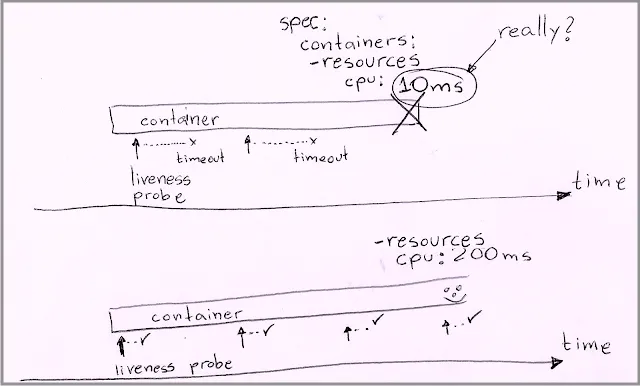 spec:
containers:
-resources
cpu: 10ms
really?
container
x
x
timeout
timeout
liveness
probe
time
-resources
cpu: 200ms
container
✓
✓
✓
✓
liveness probe
time